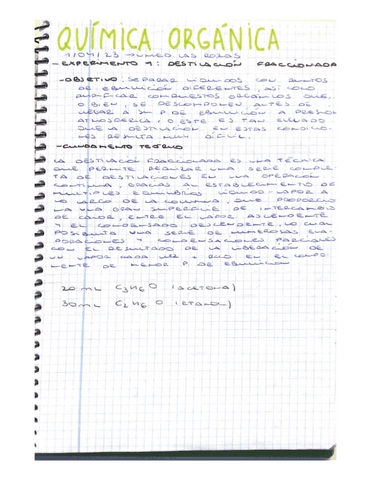 QUÍMICA ORGÁNICA
1/04/23 - UNED LAS ROZAS
- EXPERIMENTO 1: DESTILACIÓN FRACCIONADA
- OBJETIVO: SEPARAR LÍQUIDOS CON PUNTOS
DE EBULLICIÓN DIFERENTES, ASÍ COMO
PURIFICAR COMPUESTOS ORGÁNICOS QUE,
O BIEN, SE DESCOMPONEN ANTES DE
LLEGAR A SU P. DE EBULLICIÓN A PRESIÓN
ATMOSFÉRICA, O ESTE ES TAN ELEVADO
QUE LA DESTILACIÓN EN ESTAS CONDICIO-
NES RESULTA MUY DIFÍCIL.
- FUNDAMENTO TEÓRICO
LA DESTILACIÓN FRACCIONADA ES UNA TÉCNICA
QUE PERMITE REALIZAR UNA SERIE COMPLE-
TA DE DESTILACIONES EN UNA OPERACIÓN
CONTINUA, GRACIAS AL ESTABLECIMIENTO DE
MÚLTIPLES EQUILIBRIOS LÍQUIDO-VAPOR A
LO LARGO DE LA COLUMNA, QUE PROPORCIO
NA UNA GRAN SUPERFICIE DE INTERCAMBIO
DE CALOR, ENTRE EL VAPOR ASCENDENTE
Y EL CONDENSADO DESCENDENTE, LO CUAL
POSIBILITA UNA SERIE DE NUMEROSAS EVA-
PORACIONES Y CONDENSACIONES PARCIALES
CON EL RESULTADO DE LA LIBERACIÓN DE
UN VAPOR CADA VEZ + RICO EN EL COMPO-
NENTE DE MENOR P. DE EBULLICIÓN
20 mL C3H6O (ACETONA)
30 mL C2H6O (ETANOL)